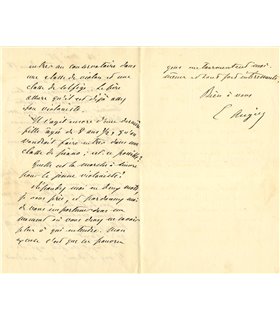 entrer au conservatoire dans
une classe de violon et une
classe de solfège. Le père
assure qu'il est déjà assez
bon violoniste.
Il s'agit encore d'une
petite âgée de 8 ans 1/2, qu'on
voudrait faire entrer dans une
classe de piano; est-ce possible?
Quelle est la marche à suivre
pour le jeune violoniste?
Répondez moi en deux mots
je vous prie, et pardonnez moi
de vous importuner dans un
moment où vous devez en avoir
plus à qui entendre. Mon
excuse c'est que les pauvres
gens me tourmentent moi-
même et sont fort intéressants.
Bien à vous
E. Augier